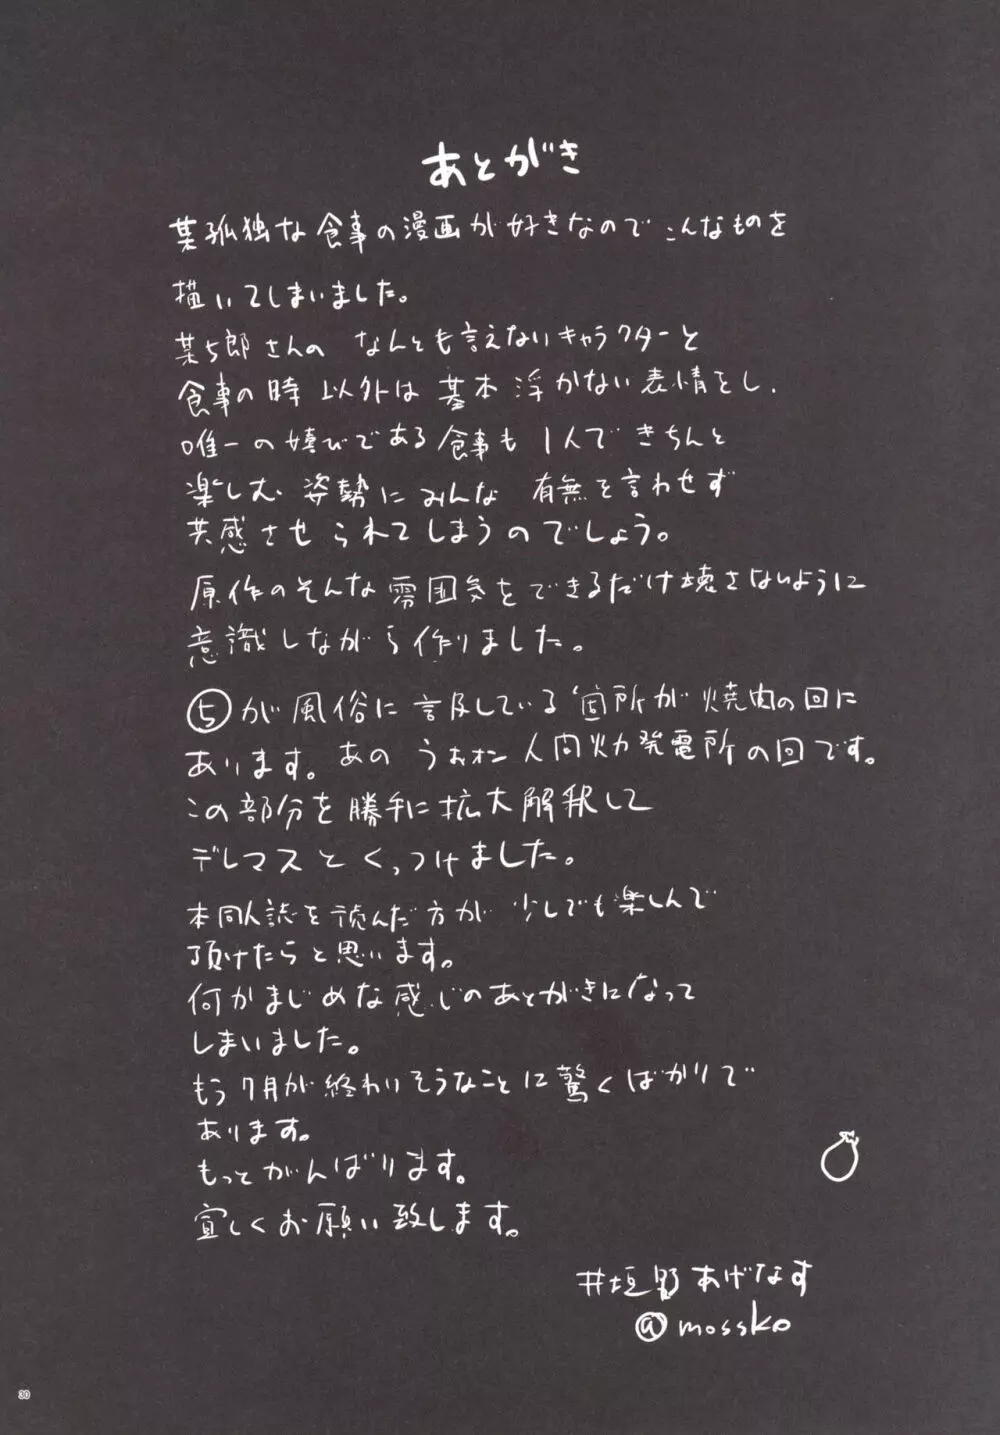 あとがき
某孤独な食事の漫画が好きなのでこんなものを
描いてしまいました。
某5郎さんの なんとも言えないキャラクターと
食事の時以外は基本浮かない表情をし、
唯一の嬉びである食事も1人できちんと
楽しむ姿勢にみんな 有無を言わせず
共感させられてしまうのでしょう。
原作のそんな雰囲気をできるだけ壊さないように
意識しながら作りました。
⑤が風俗に言及している箇所が焼肉の回に
あります。あの うぉオン人間火力発電所の回です。
この部分を勝手に拡大解釈して
デレマスとくっつけました。
本同人誌を読んだ方が少しでも楽しんで
頂けたらと思います。
何かまじめな感じのあとがきになって
しまいました。
もう7月が終わりそうなことに驚くばかりで
あります。
もっとがんばります。
宜しくお願い致します。
井垣野あげなす
@mossko
30